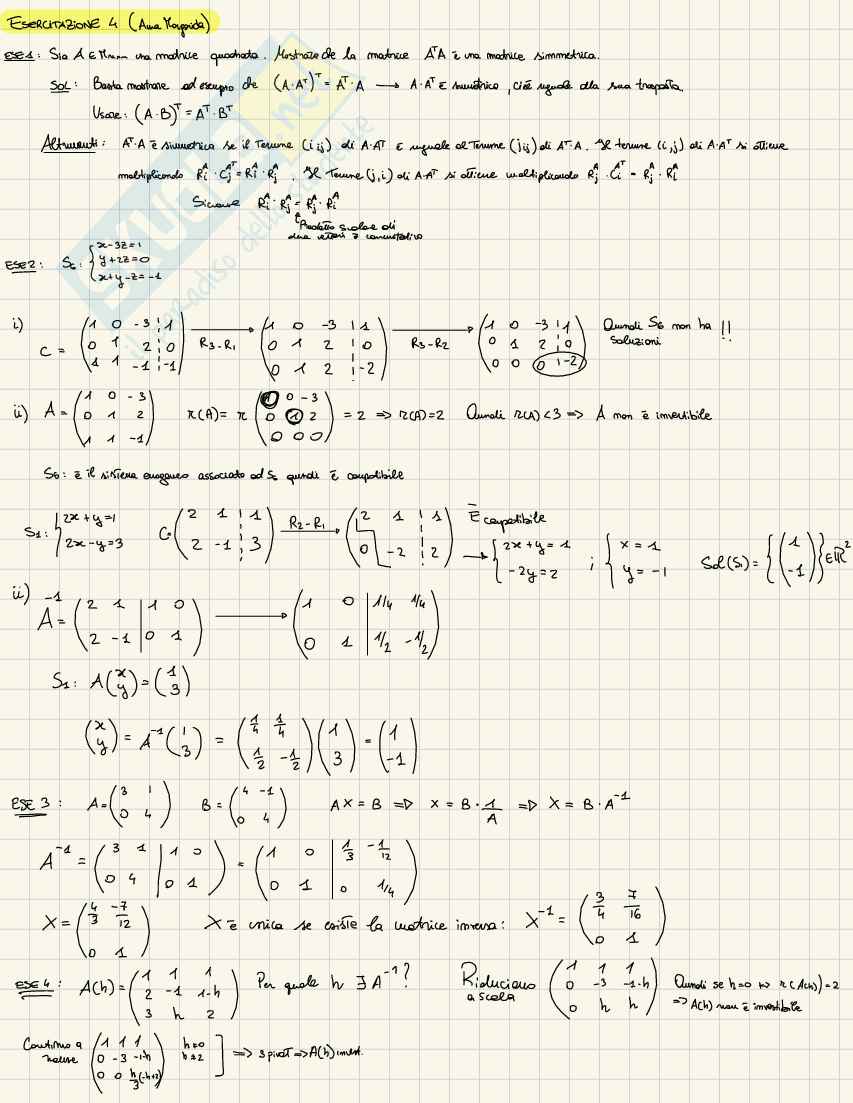 ESERCITAZIONE 4 (Anna Margarida)
ESE 1: Sia A ∈ Mnxn una matrice quadrata. Mostrare che la matrice AᵀA è una matrice simmetrica.
SOL: Basta mostrare ad esempio che (A·Aᵀ)ᵀ = Aᵀ·A → A·Aᵀ è simmetrica, cioè uguale alla sua trasposta.
Usare: (A·B)ᵀ = Aᵀ·Bᵀ
Altrimenti: Aᵀ·A è simmetrica se il Termine (i,j) di A·Aᵀ è uguale al Termine (j,i) di Aᵀ·A. Il termine (i,j) di A·Aᵀ si ottiene
moltiplicando Rᵢᴬ · Cⱼᴬᵀ = Rᵢᴬ · Rⱼᴬ. Il Termine (j,i) di A·Aᵀ si ottiene moltiplicando Rⱼᴬ · Cᵢᴬᵀ = Rⱼᴬ · Rᵢᴬ
Siccome Rᵢᴬ · Rⱼᴬ = Rⱼᴬ · Rᵢᴬ
↑ Prodotto scalare di
due vettori è commutativo
ESE 2: S₆: { x-3z=1
y+2z=0
x+y-z=-1
i) C = (1 0 -3 | 1
0 1 2 | 0
1 1 -1 | -1) R3-R1 → (1 0 -3 | 1
0 1 2 | 0
0 1 2 | -2) R3-R2 → (1 0 -3 | 1
0 1 2 | 0
0 0 0 | -2) Quindi S6 non ha soluzioni !!
ii) A = (1 0 -3
0 1 2
1 1 -1) r(A) = r (1 0 -3
0 1 2
0 0 0) = 2 ⇒ r(A)=2 Quindi r(A)<3 ⇒ A non è invertibile
S6: è il sistema omogeneo associato ad S₆ quindi è compatibile
S1: { 2x+y=1
2x-y=3 C (2 1 | 1
2 -1 | 3) R2-R1 → (2 1 | 1
0 -2 | 2) È compatibile
→ { 2x+y=1
-2y=2 ; { x=1
y=-1 Sol(S1) = {(1
-1)} ∈ ℝ²
ii) A⁻¹ = (2 1 | 1 0
2 -1 | 0 1) → (1 0 | 1/4 1/4
0 1 | 1/2 -1/2)
S1: A (x
y) = (1
3)
(x
y) = A⁻¹ (1
3) = (1/4 1/4
1/2 -1/2) (1
3) = (1
-1)
ESE 3: A = (3 1
0 4) B = (4 -1
0 4) AX = B ⇒ X = B · 1/A ⇒ X = B · A⁻¹
A⁻¹ = (3 1 | 1 0
0 4 | 0 1) = (1 0 | 1/3 -1/12
0 1 | 0 1/4)
X = (4/3 -7/12
0 1) X è unica se esiste la matrice inversa: X⁻¹ = (3/4 7/16
0 1)
ESE 4: A(h) = (1 1 1
2 -1 1-h
3 h 2) Per quale h ∃ A⁻¹? Riduciamo a scala (1 1 1
0 -3 -1-h
0 h h) Quindi se h=0 ⇔ r(A(h))=2
⇒ A(h) non è invertibile
Continuo a (1 1 1
0 -3 -1-h
0 0 h/3(-h+2)) h≠0
h≠2 ] ⇒ 3 pivot ⇒ A(h) invert.